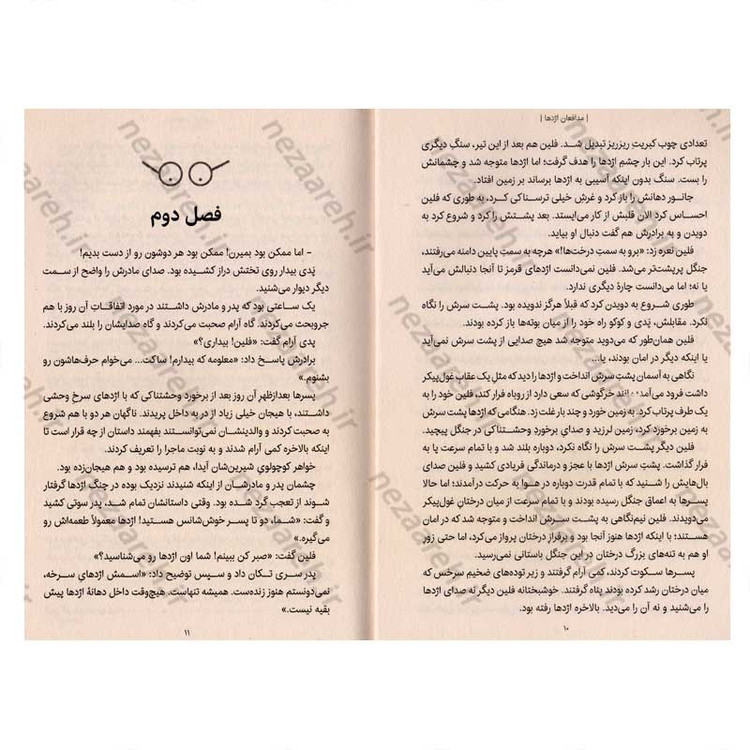 | مدافعان اژدها |
تعدادی چوب کبریتِ ریزریز تبدیل شد. فلین هم بعد از این تیر، سنگِ دیگری
پرتاب کرد. این بار چشمِ اژدها را هدف گرفت؛ اما اژدها متوجه شد و چشمانش
را بست. سنگ بدون اینکه آسیبی به اژدها برساند بر زمین افتاد.
جانور دهانش را باز کرد و غرشِ خیلی ترسناکی کرد، به طوری که فلین
احساس کرد الان قلبش از کار می‌ایستد. بعد پشتش را کرد و شروع کرد به
دویدن و به برادرش هم گفت دنبال او بیاید.
فلین نعره زد: «برو به سمتِ درخت‌ها!» هرچه به سمتِ پایین دامنه می‌رفتند،
جنگل پرپشت‌تر می‌شد. فلین نمی‌دانست اژدهای قرمز تا آنجا دنبالش می‌آید
یا نه؛ اما می‌دانست چارهٔ دیگری ندارد.
طوری شروع به دویدن کرد که قبلاً هرگز ندویده بود. پشت سرش را نگاه
نکرد. مقابلش، پَدی و کوکو راه خود را از میان بوته‌ها باز کرده بودند.
فلین همان‌طور که می‌دوید متوجه شد هیچ صدایی از پشت سرش نمی‌آید
یا اینکه دیگر در امان بودند، یا...
نگاهی به آسمانِ پشت سرش انداخت و اژدها را دید که مثلِ یک عقابِ غول‌پیکر
داشت فرود می‌آمد. مانند خرگوشی که سعی دارد از روباه فرار کند، فلین خود را به
یک طرف پرتاب کرد. به زمین خورد و چند بار غلت زد. هنگامی که اژدها پشت سرش
به زمین برخورد کرد، زمین لرزید و صدایِ برخوردِ وحشتناکی در جنگل پیچید.
فلین دیگر پشت سرش را نگاه نکرد، دوباره بلند شد و با تمام سرعت پا به
فرار گذاشت. پشتِ سرش اژدها با عجز و درماندگی فریادی کشید و فلین صدای
بال‌هایش را شنید که با تمام قدرت دوباره در هوا به حرکت درآمدند؛ اما حالا
پسرها به اعماق جنگل رسیده بودند و با تمام سرعت از میان درختانِ غول‌پیکر
می‌دویدند. فلین نیم‌نگاهی به پشت سرش انداخت و متوجه شد که در امان
هستند؛ با اینکه اژدها هنوز آنجا بود و برفراز درختان پرواز می‌کرد، اما حتی زورِ
او هم به تنه‌های بزرگ درختان در این جنگل باستانی نمی‌رسید.
پسرها سکوت کردند، کمی آرام گرفتند و زیر توده‌های ضخیم سرخس که
میان درختان رشد کرده بودند پناه گرفتند. خوشبختانه فلین دیگر نه صدای اژدها
را می‌شنید و نه آن را می‌دید. بالاخره اژدها رفته بود.
۱۰
فصل دوم
- اما ممکن بود بمیرن! ممکن بود هر دوشون رو از دست بدیم!
پَدی بیدار روی تختش دراز کشیده بود. صدای مادرش را واضح از سمت
دیگر دیوار می‌شنید.
یک ساعتی بود که پدر و مادرش داشتند در مورد اتفاقاتِ آن روز با هم
جروبحث می‌کردند. گاه آرام صحبت می‌کردند و گاه صدایشان را بلند می‌کردند.
پدی آرام گفت: «فلین! بیداری؟»
برادرش پاسخ داد: «معلومه که بیدارم! ساکت... می‌خوام حرف‌هاشون رو
بشنوم.»
پسرها بعدازظهرِ آن روز بعد از برخوردِ وحشتناکی که با اژدهای سرخِ وحشی
داشتند، با هیجان خیلی زیاد از در به داخل پریدند. ناگهان هر دو با هم شروع
به صحبت کردند و والدینشان نمی‌توانستند بفهمند داستان از چه قرار است تا
اینکه بالاخره کمی آرام شدند و به نوبت ماجرا را تعریف کردند.
خواهر کوچولویِ شیرین‌شان آیدا، هم ترسیده بود و هم هیجان‌زده بود.
چشمانِ پدر و مادرشان از اینکه شنیدند نزدیک بوده در چنگِ اژدها گرفتار
شوند از تعجب گرد شده بود. وقتی داستانشان تمام شد، پدر سوتی کشید
و گفت: «شما، دو تا پسرِ خوش‌شانس هستید! اژدها معمولاً طعمه‌اش رو
می‌گیره.»
فلین گفت: «صبر کن ببینم! شما اون اژدها رو می‌شناسید؟»
پدر سری تکان داد و سپس توضیح داد: «اسمش اژدهایِ سرخه،
نمی‌دونستم هنوز زنده‌ست. همیشه تنهاست. هیچ‌وقت داخل دهانهٔ اژدها پیشِ
بقیه نیست.»
۱۱
nezaareh.ir